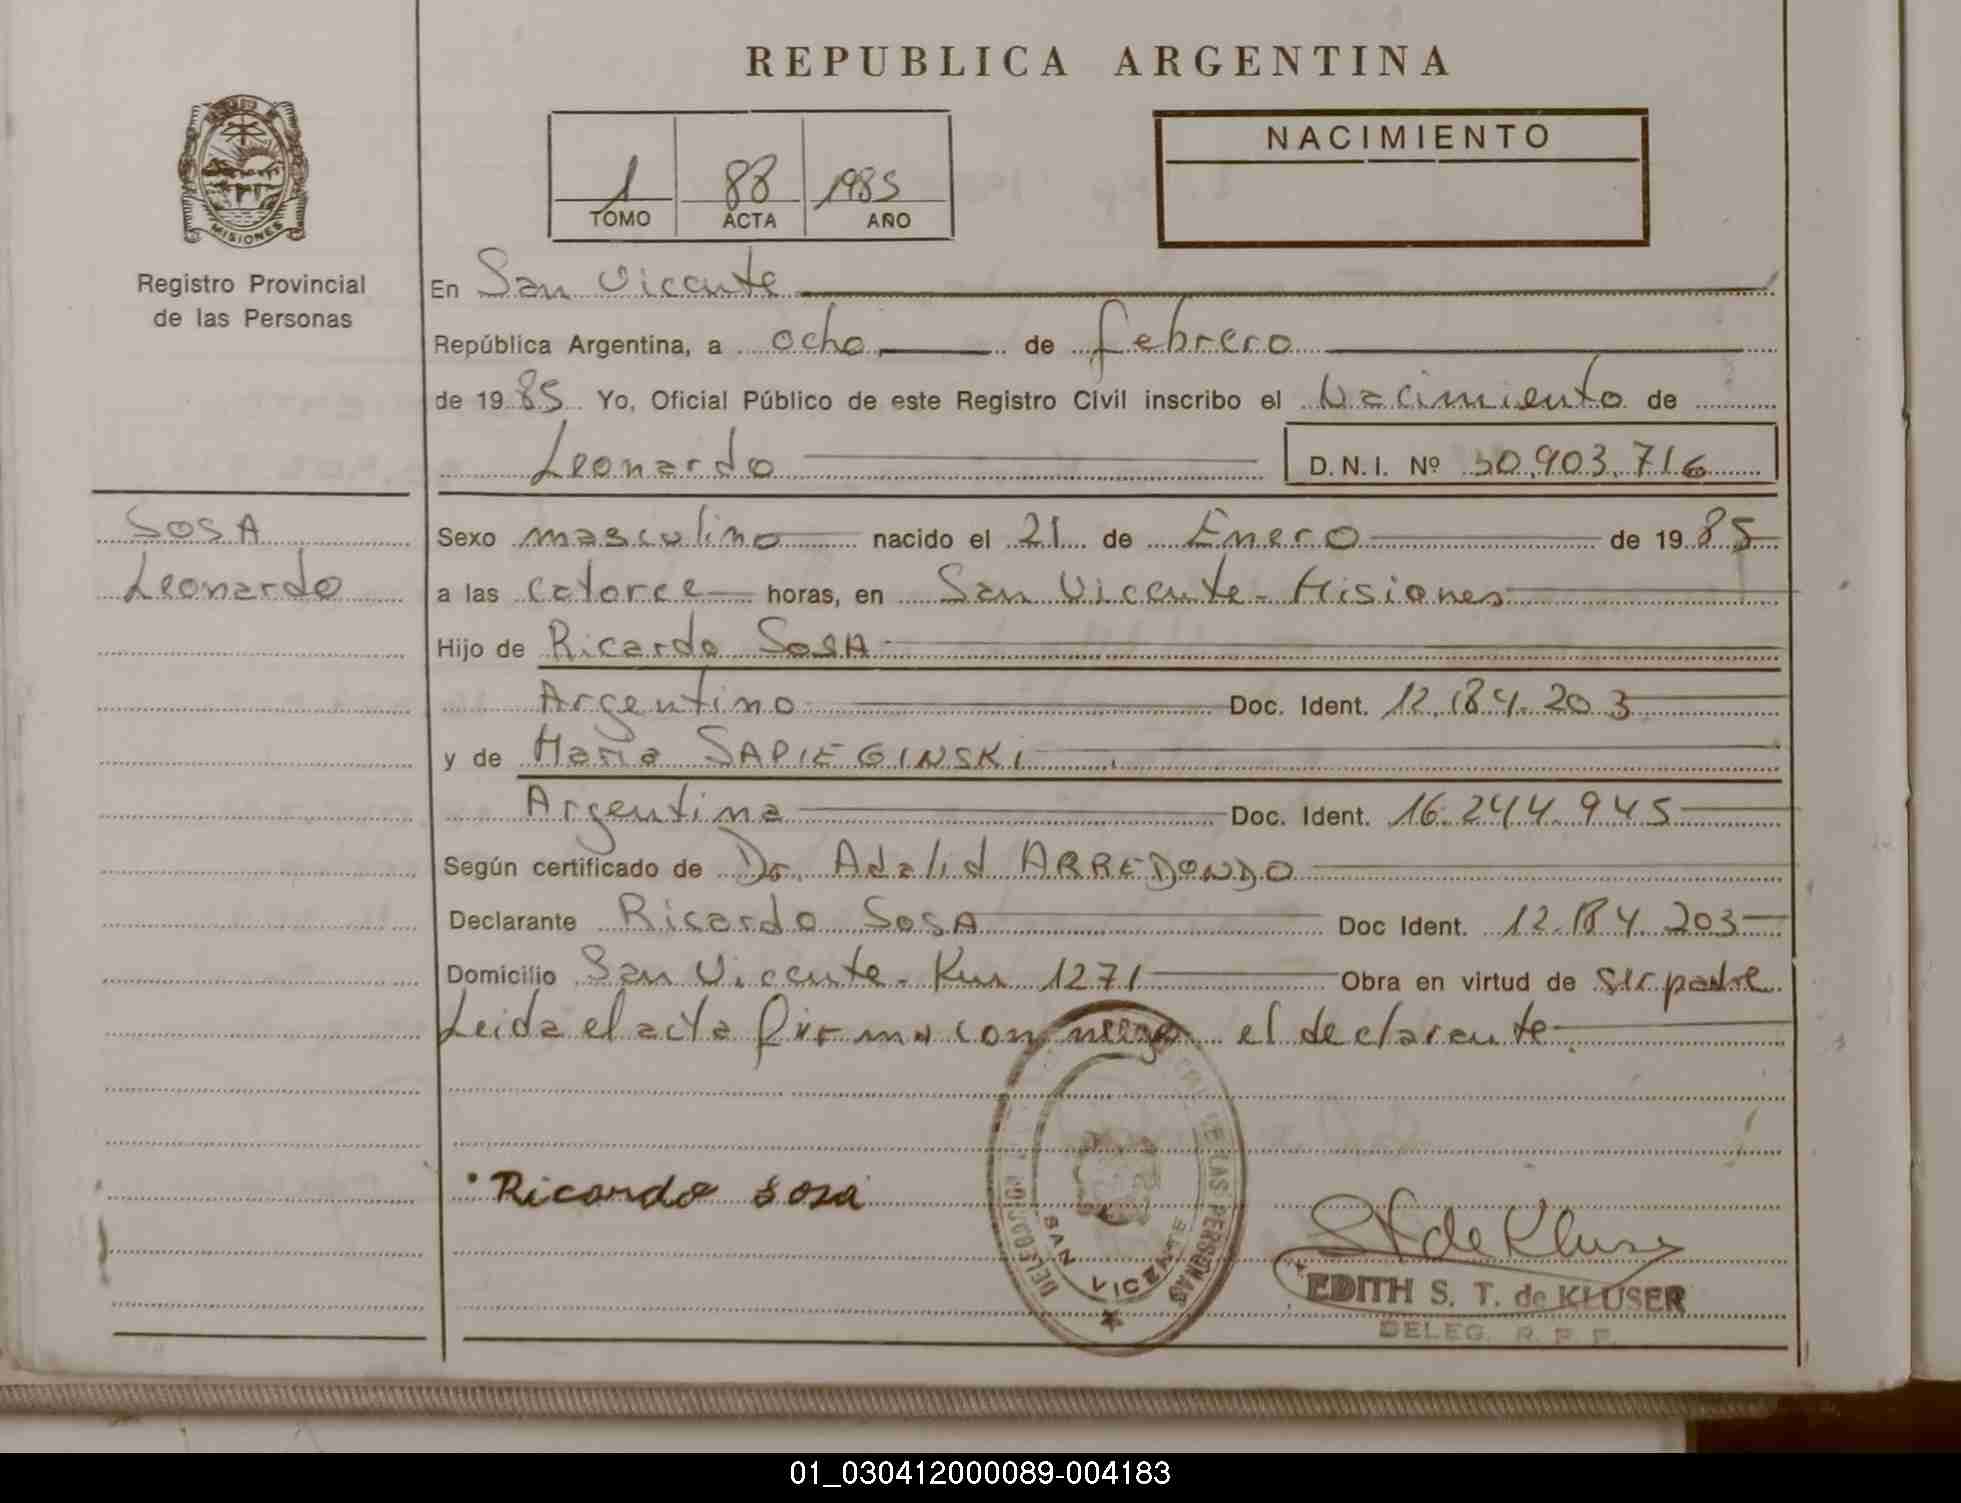 REPUBLICA ARGENTINA
1 88 1985
TOMO ACTA AÑO
NACIMIENTO
MISIONES
Registro Provincial
de las Personas
En San Vicente
República Argentina, a ocho de febrero
de 1985 Yo, Oficial Público de este Registro Civil inscribo el Nacimiento de
Leonardo D.N.I. Nº 30.903.716
SOSA
Leonardo
Sexo masculino nacido el 21 de Enero de 1985
a las catorce horas, en San Vicente - Misiones
Hijo de Ricardo SOSA
Argentino Doc. Ident. 12.184.203
y de Maria SAPIEGINSKI
Argentina Doc. Ident. 16.244.945
Según certificado de Dr. Adalid ARREDONDO
Declarante Ricardo SOSA Doc Ident. 12.184.203
Domicilio San Vicente - Km 1271 Obra en virtud de ser padre
Leida el acta firma con el declarante
Ricardo Sosa
DE LAS PERSONAS
SAN VICENTE
de Kluser
EDITH S. T. de KLUSER
DELEG. R. P. P.
01_030412000089-004183